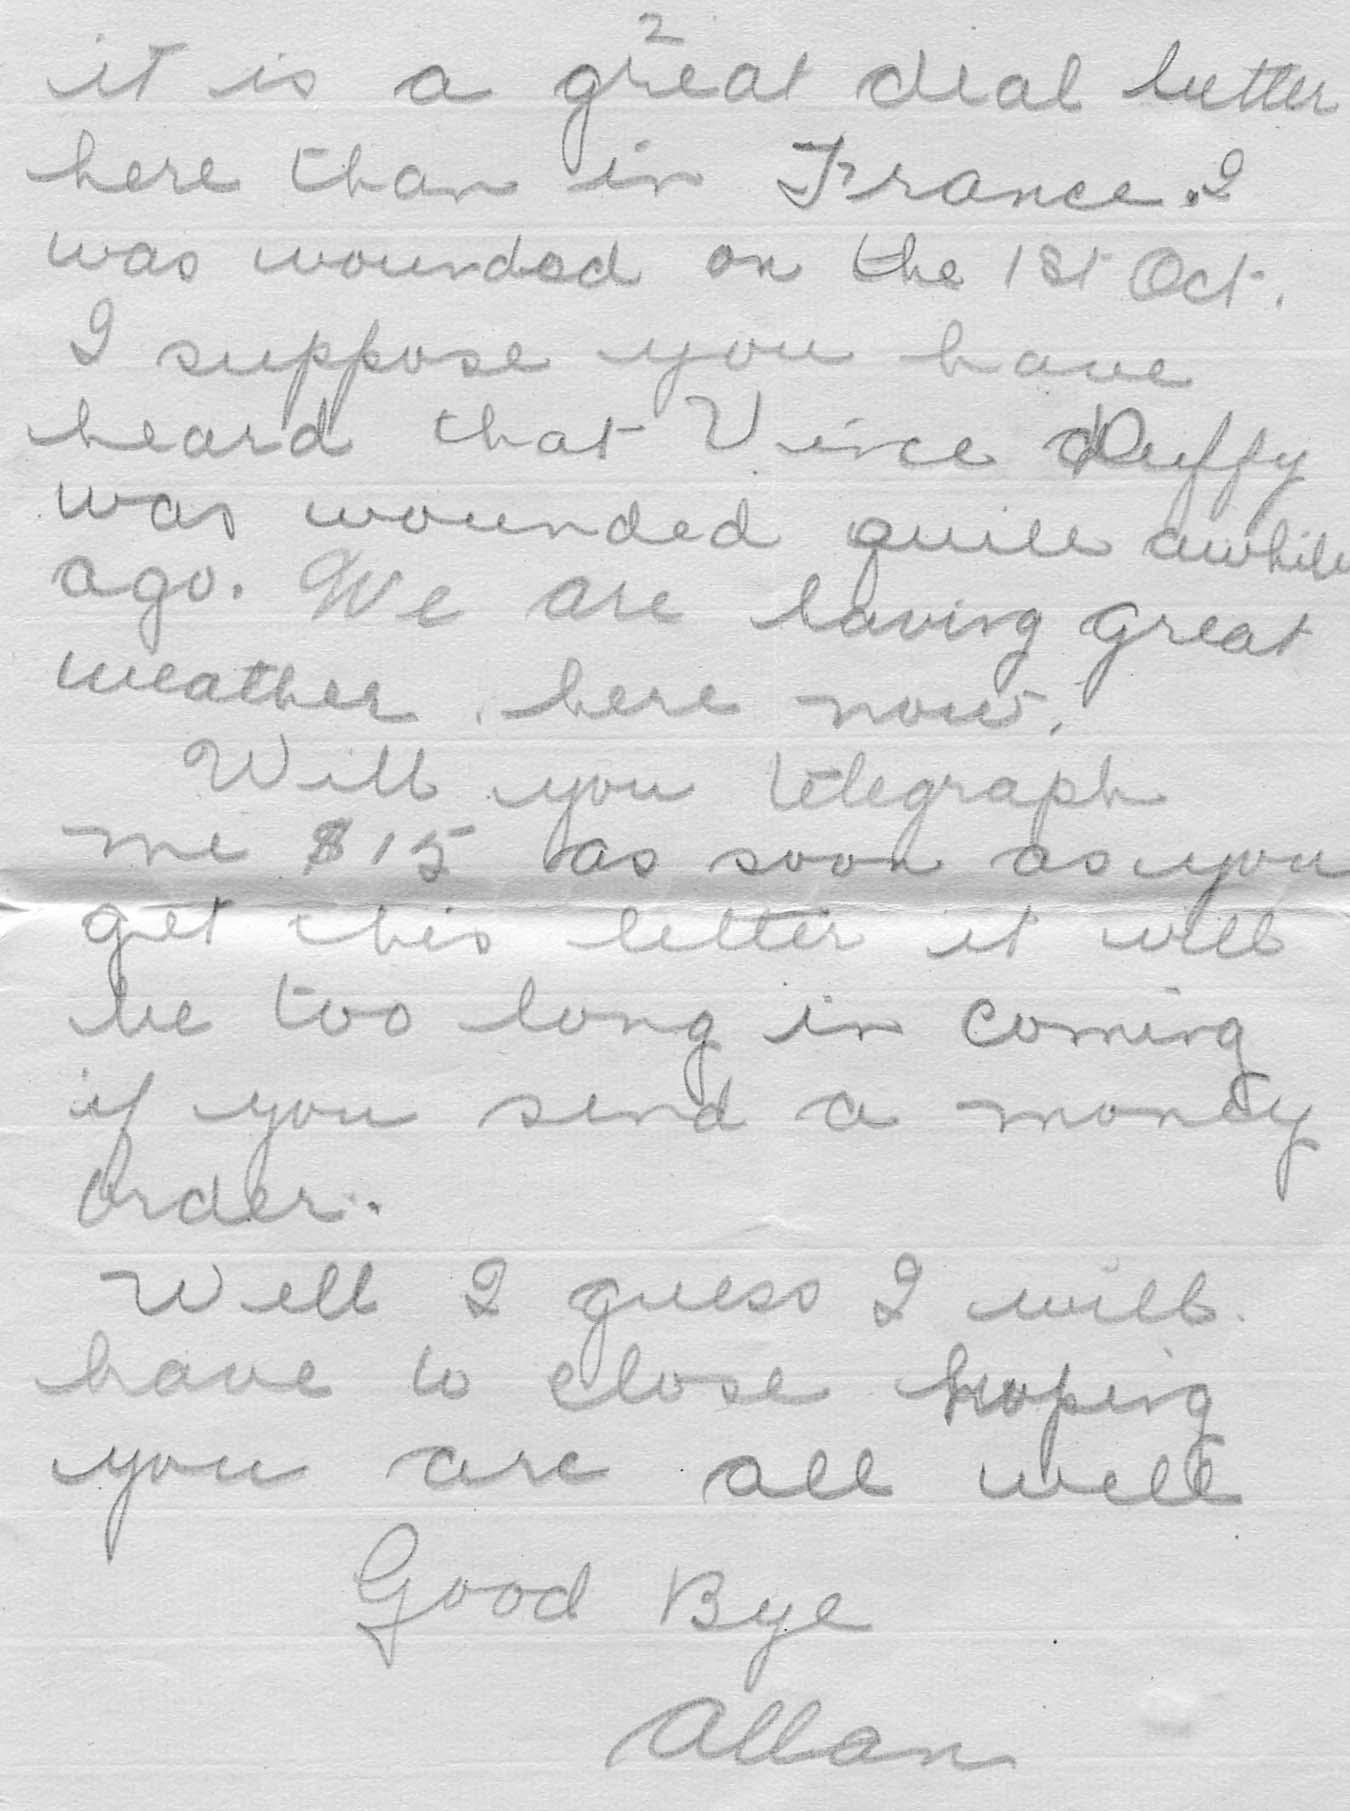 2
it is a great deal better
here than in France. I
was wounded on the 1st Oct.
I suppose you have
heard that Vince Duffy
was wounded quite awhile
ago. We are having great
weather here now.
Will you telegraph
me $15 as soon as you
get this letter it will
be too long in coming
if you send a money
order.
Well I guess I will
have to close hoping
you are all well
Good Bye
Allan